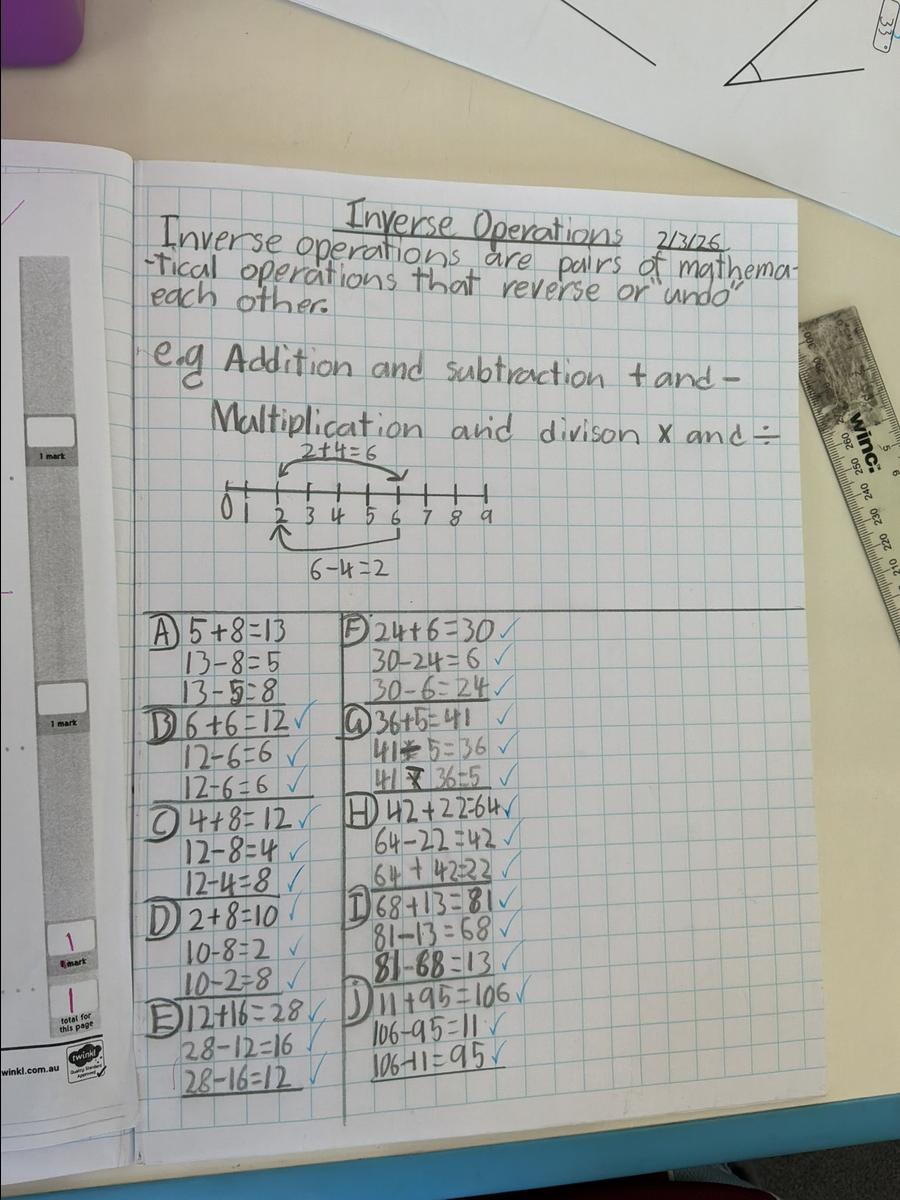 33°
Inverse Operations 2/3/26
Inverse operations are pairs of mathema-
-tical operations that reverse or "undo"
each other.
e.g Addition and subtraction + and -
Maltiplication and divison x and ÷
2+4=6
0 1 2 3 4 5 6 7 8 9
6-4=2
A 5+8=13
13-8=5
13-5=8
B 6+6=12 ✓
12-6=6 ✓
12-6=6 ✓
C 4+8=12 ✓
12-8=4 ✓
12-4=8 ✓
D 2+8=10 ✓
10-8=2 ✓
10-2=8 ✓
E 12+16=28 ✓
28-12=16 ✓
28-16=12 ✓
F 24+6=30 ✓
30-24=6 ✓
30-6=24 ✓
G 36+5=41 ✓
41 5=36 ✓
41 36=5 ✓
H 42+22=64 ✓
64-22=42 ✓
64+42=22 ✓
I 68+13=81 ✓
81-13=68 ✓
81-68=13 ✓
J 11+95=106 ✓
106-95=11 ✓
106-11=95 ✓
1 mark
1 mark
1
mark
1
total for
this page
winkl.com.au
twinkl
Quality Standard
Approved
winc.
260
250
240
230
220
210